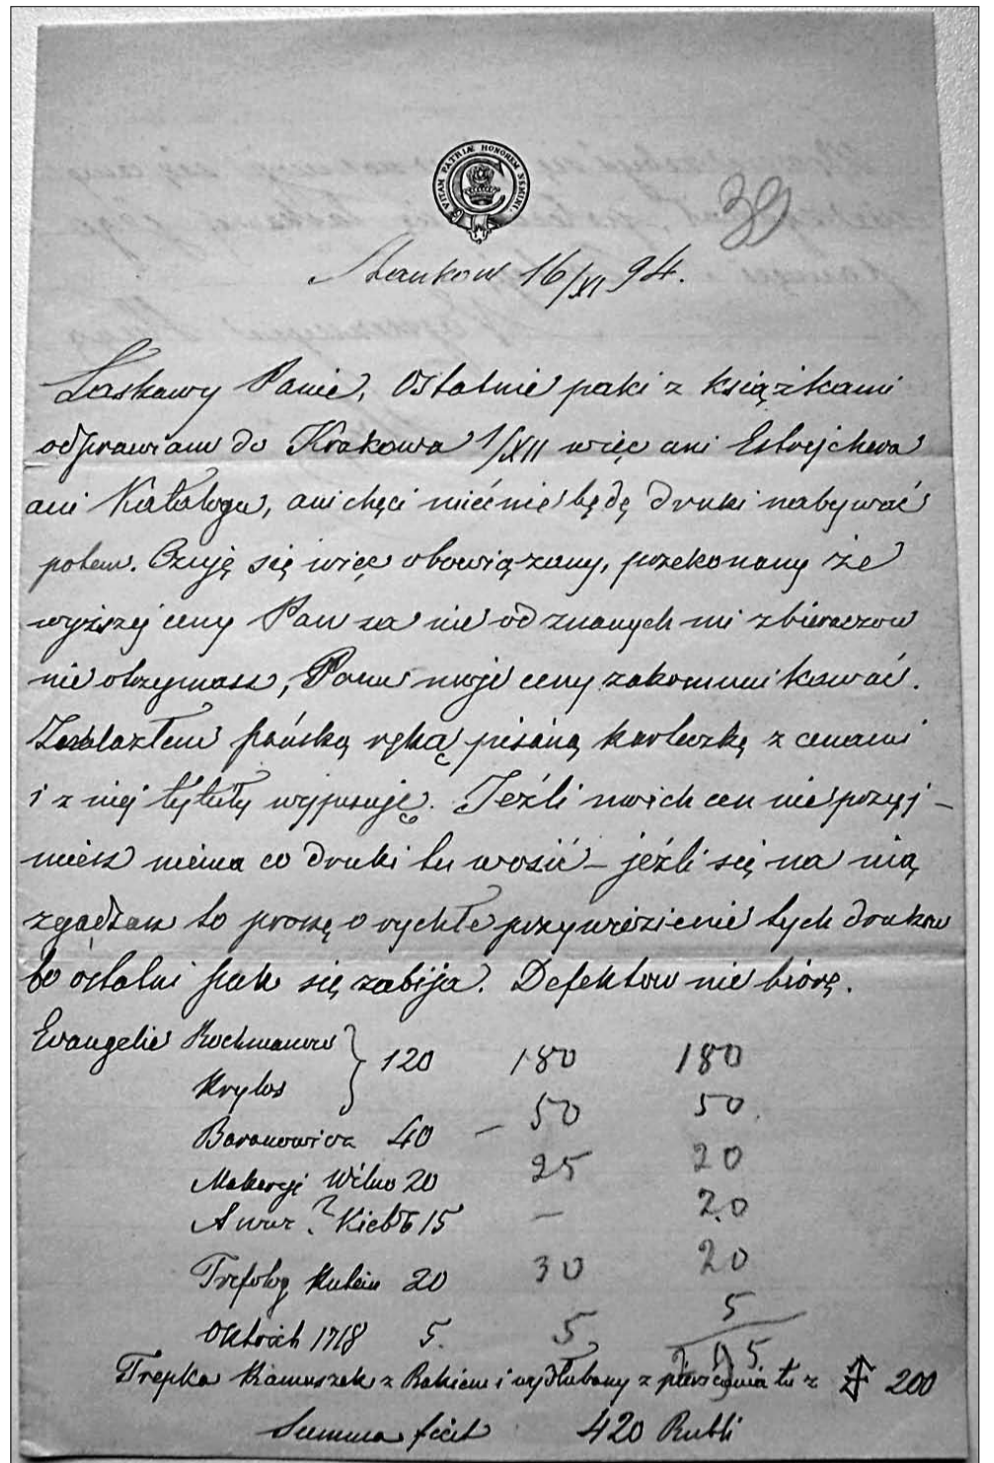 VITAM PATRIÆ HONOREM NEMINI.
39
Stankow 16/XI 94.
Łaskawy Panie, Ostatnie paki z książkami
odprawiam do Krakowa 1/XII więc ani Estrejchera
ani Katalogu, ani chęci mieć nie będę druki nabywać
potem. Czuję się więc obowiązany, przekonany że
wyższej ceny Pan za nie od znanych mi zbieraczow
nie otrzymasz, Panu moje ceny zakomunikować.
Znalazłem pańską ręką pisaną karteczkę z cenami
i z niej tytuły wypisuję. Jeźli moich cen nie przyj-
miesz niema co druki tu wozić – jeźli się na nią
zgadzasz to proszę o rychłe przywiezienie tych drukow
bo ostatni pak się zabija. Defektow nie biorę.
Evangelie Rochmanow } 120 180 180
Krylos 50 50
Baranowicz 40 –
Makaryi Wilno 20 25 20
? 15 – 20
Trefolog Kutein 20 30 20
Oktoich 1718 5. 5 5
Trepka Kamuszek z Rakiem i wydłubany z pierścienia tu z 200
Summa facit 420 Rubli